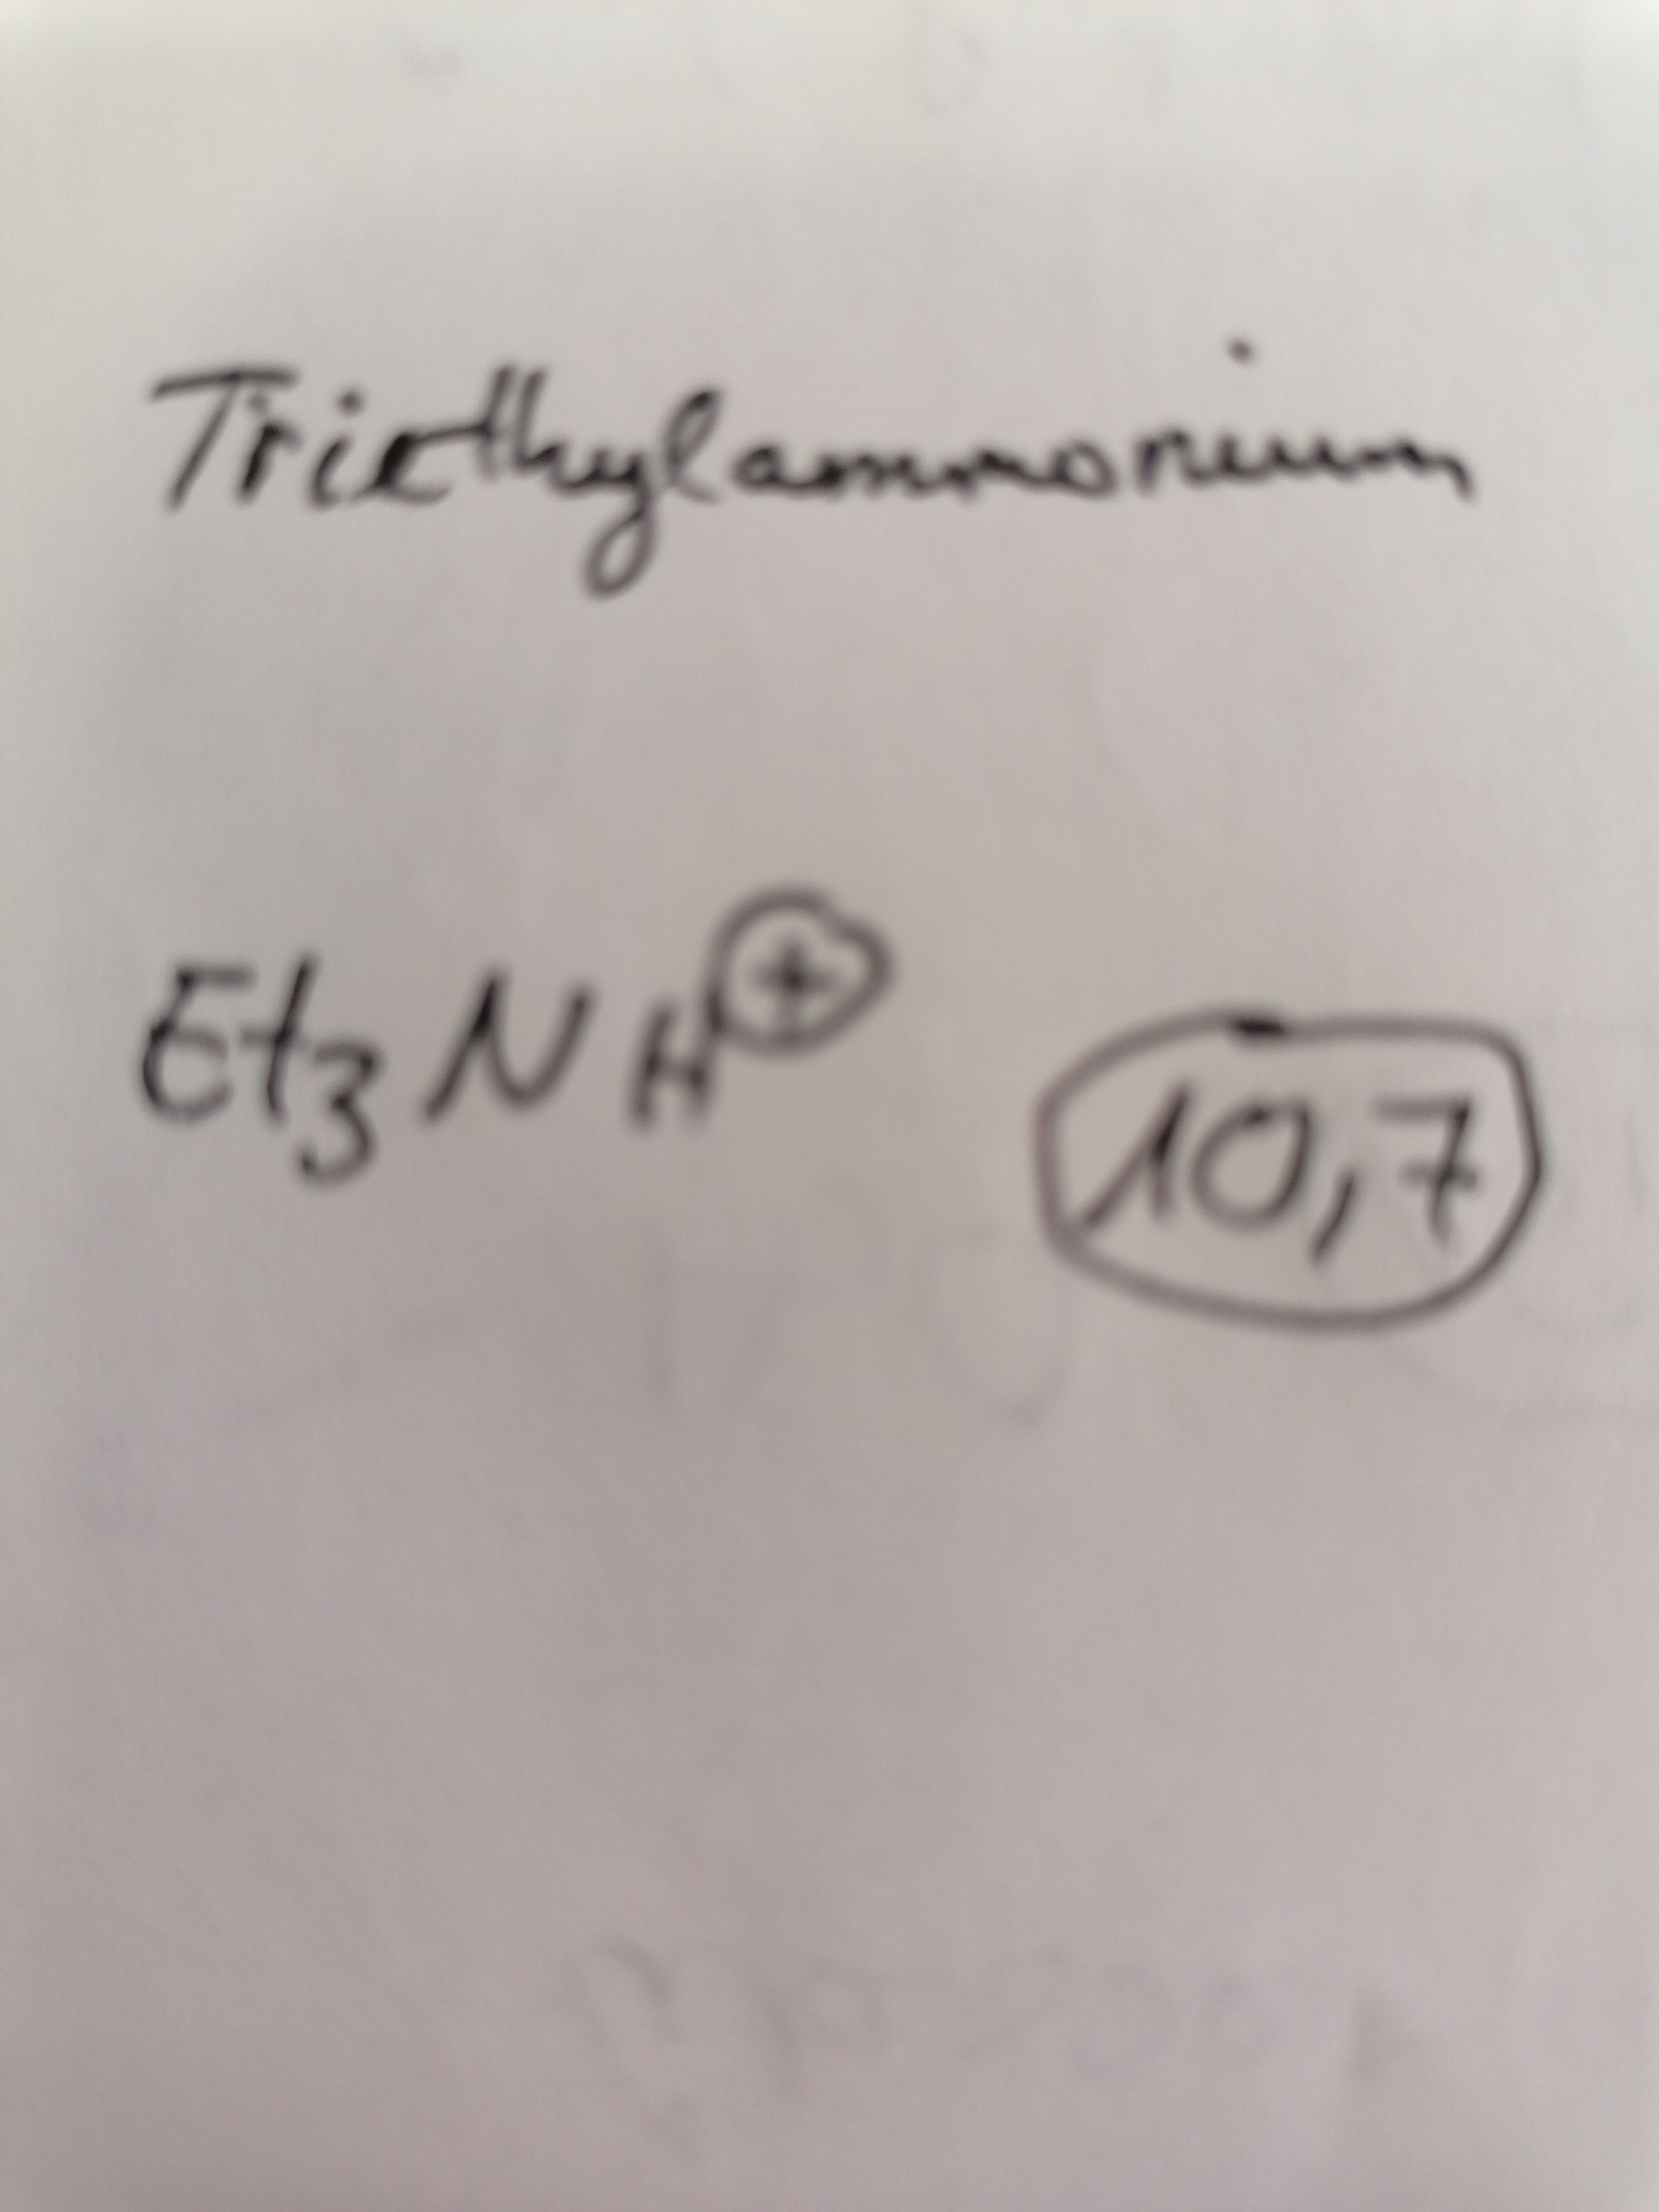 Triethylammonium
Et₃NH⊕
10,7